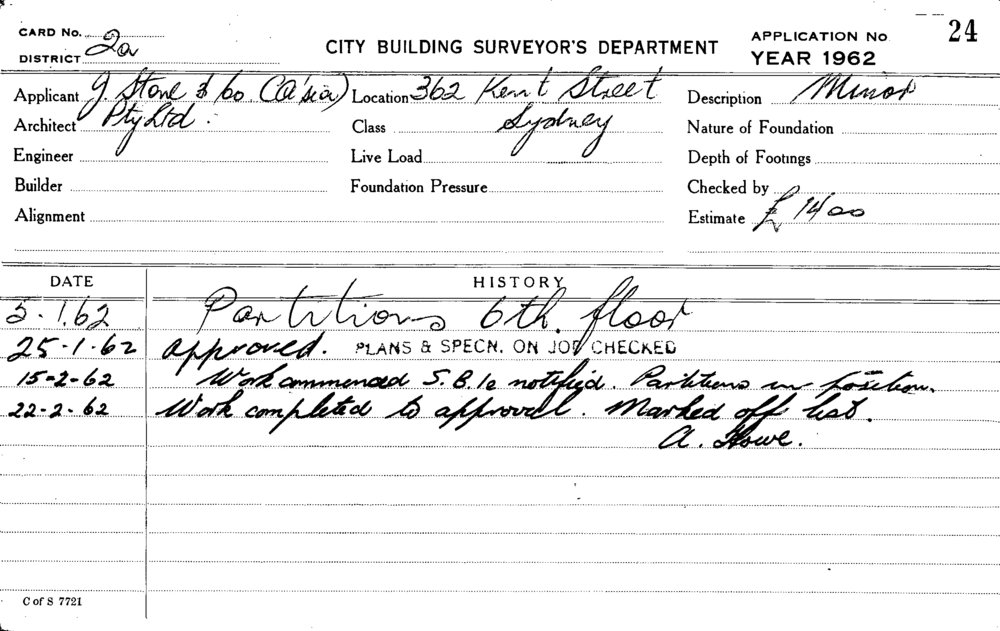 CARD No.
DISTRICT 2a
CITY BUILDING SURVEYOR'S DEPARTMENT
APPLICATION No. 24
YEAR 1962
Applicant J. Stone & Co (A'sia) Location 362 Kent Street Description Minor
Architect Pty Ltd. Class Sydney Nature of Foundation
Engineer Live Load Depth of Footings
Builder Foundation Pressure Checked by
Alignment Estimate £ 1400
DATE HISTORY
5-1.62 Partitions 6th. floor
25-1-62 approved. PLANS & SPECN. ON JOB CHECKED
15-2-62 Work commenced S.B.1c notified. Partitions in position.
22-2-62 Work completed to approval. Marked off list.
A. Howe.
C of S 7721